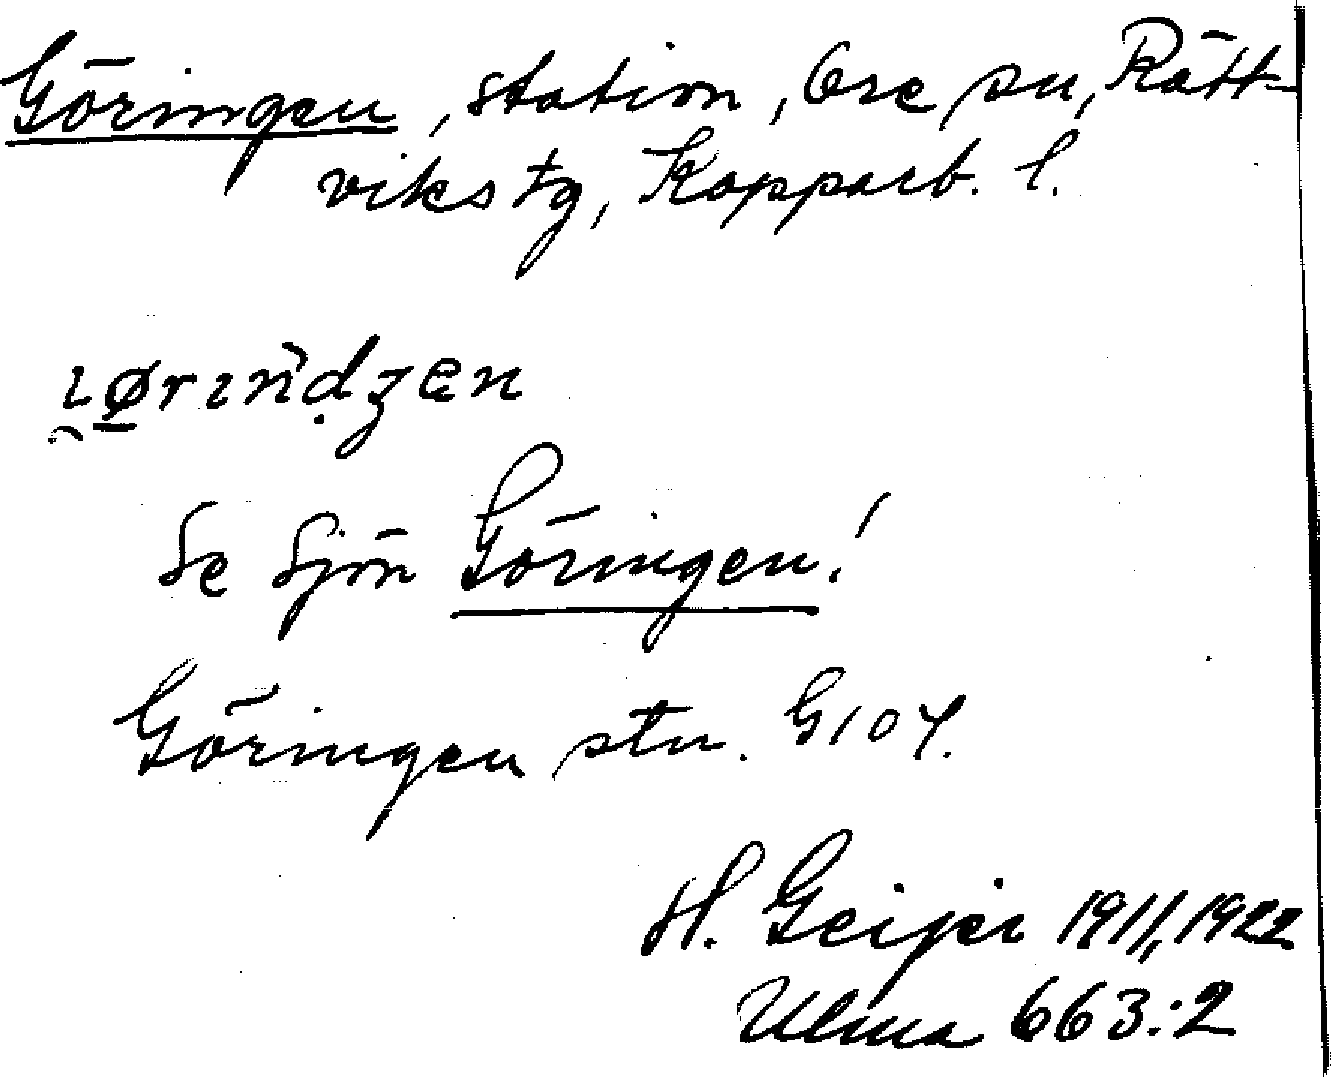 Göringen, station, Ore sn, Rätt-
viks tg, Kopparb. l.
Se Sjön Göringen!
Göringen stn. G104.
H. Geijer 1911, 1922
Ulma 663:2